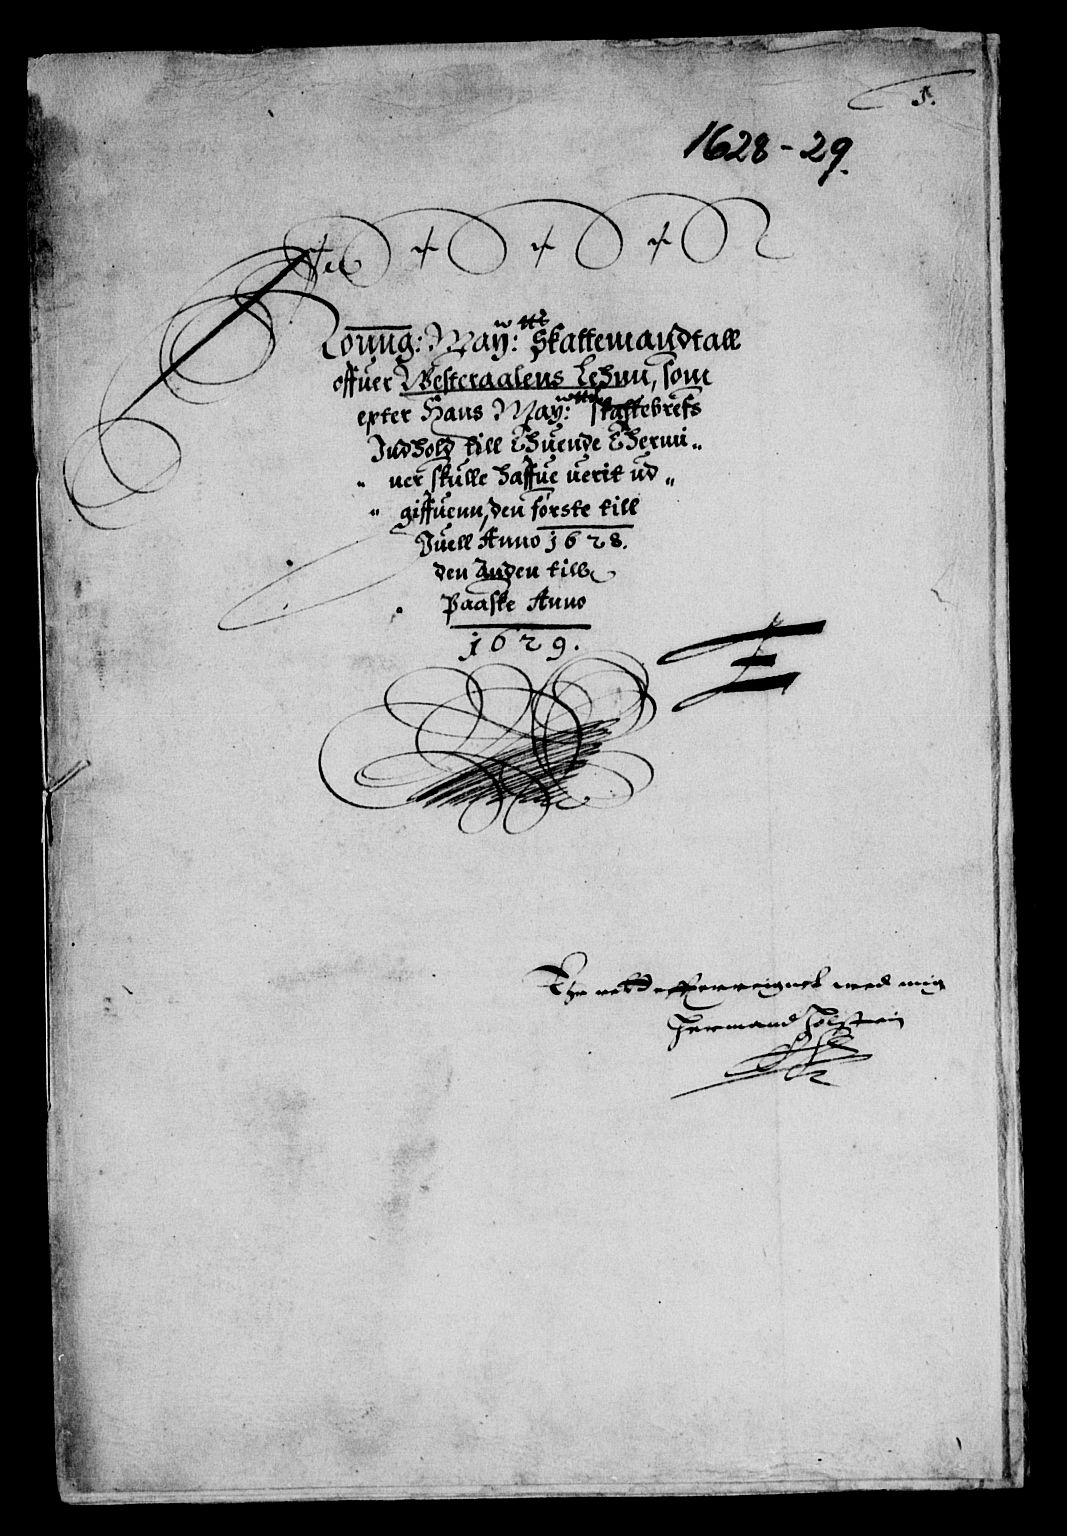 1.
1628-29.
Koning: May: tts Skattemandtall
offuer Westeraalens Lehnn, som
epter Hans May: tts skattebrefs
Indhold till Thuende Thermi„
„ ner skulle haffue uerit ud„
„ giffuenn, den förste till
Juell Anno 1628.
den Anden till
Paaske Anno
1629.
med mig
Hermand Holstein